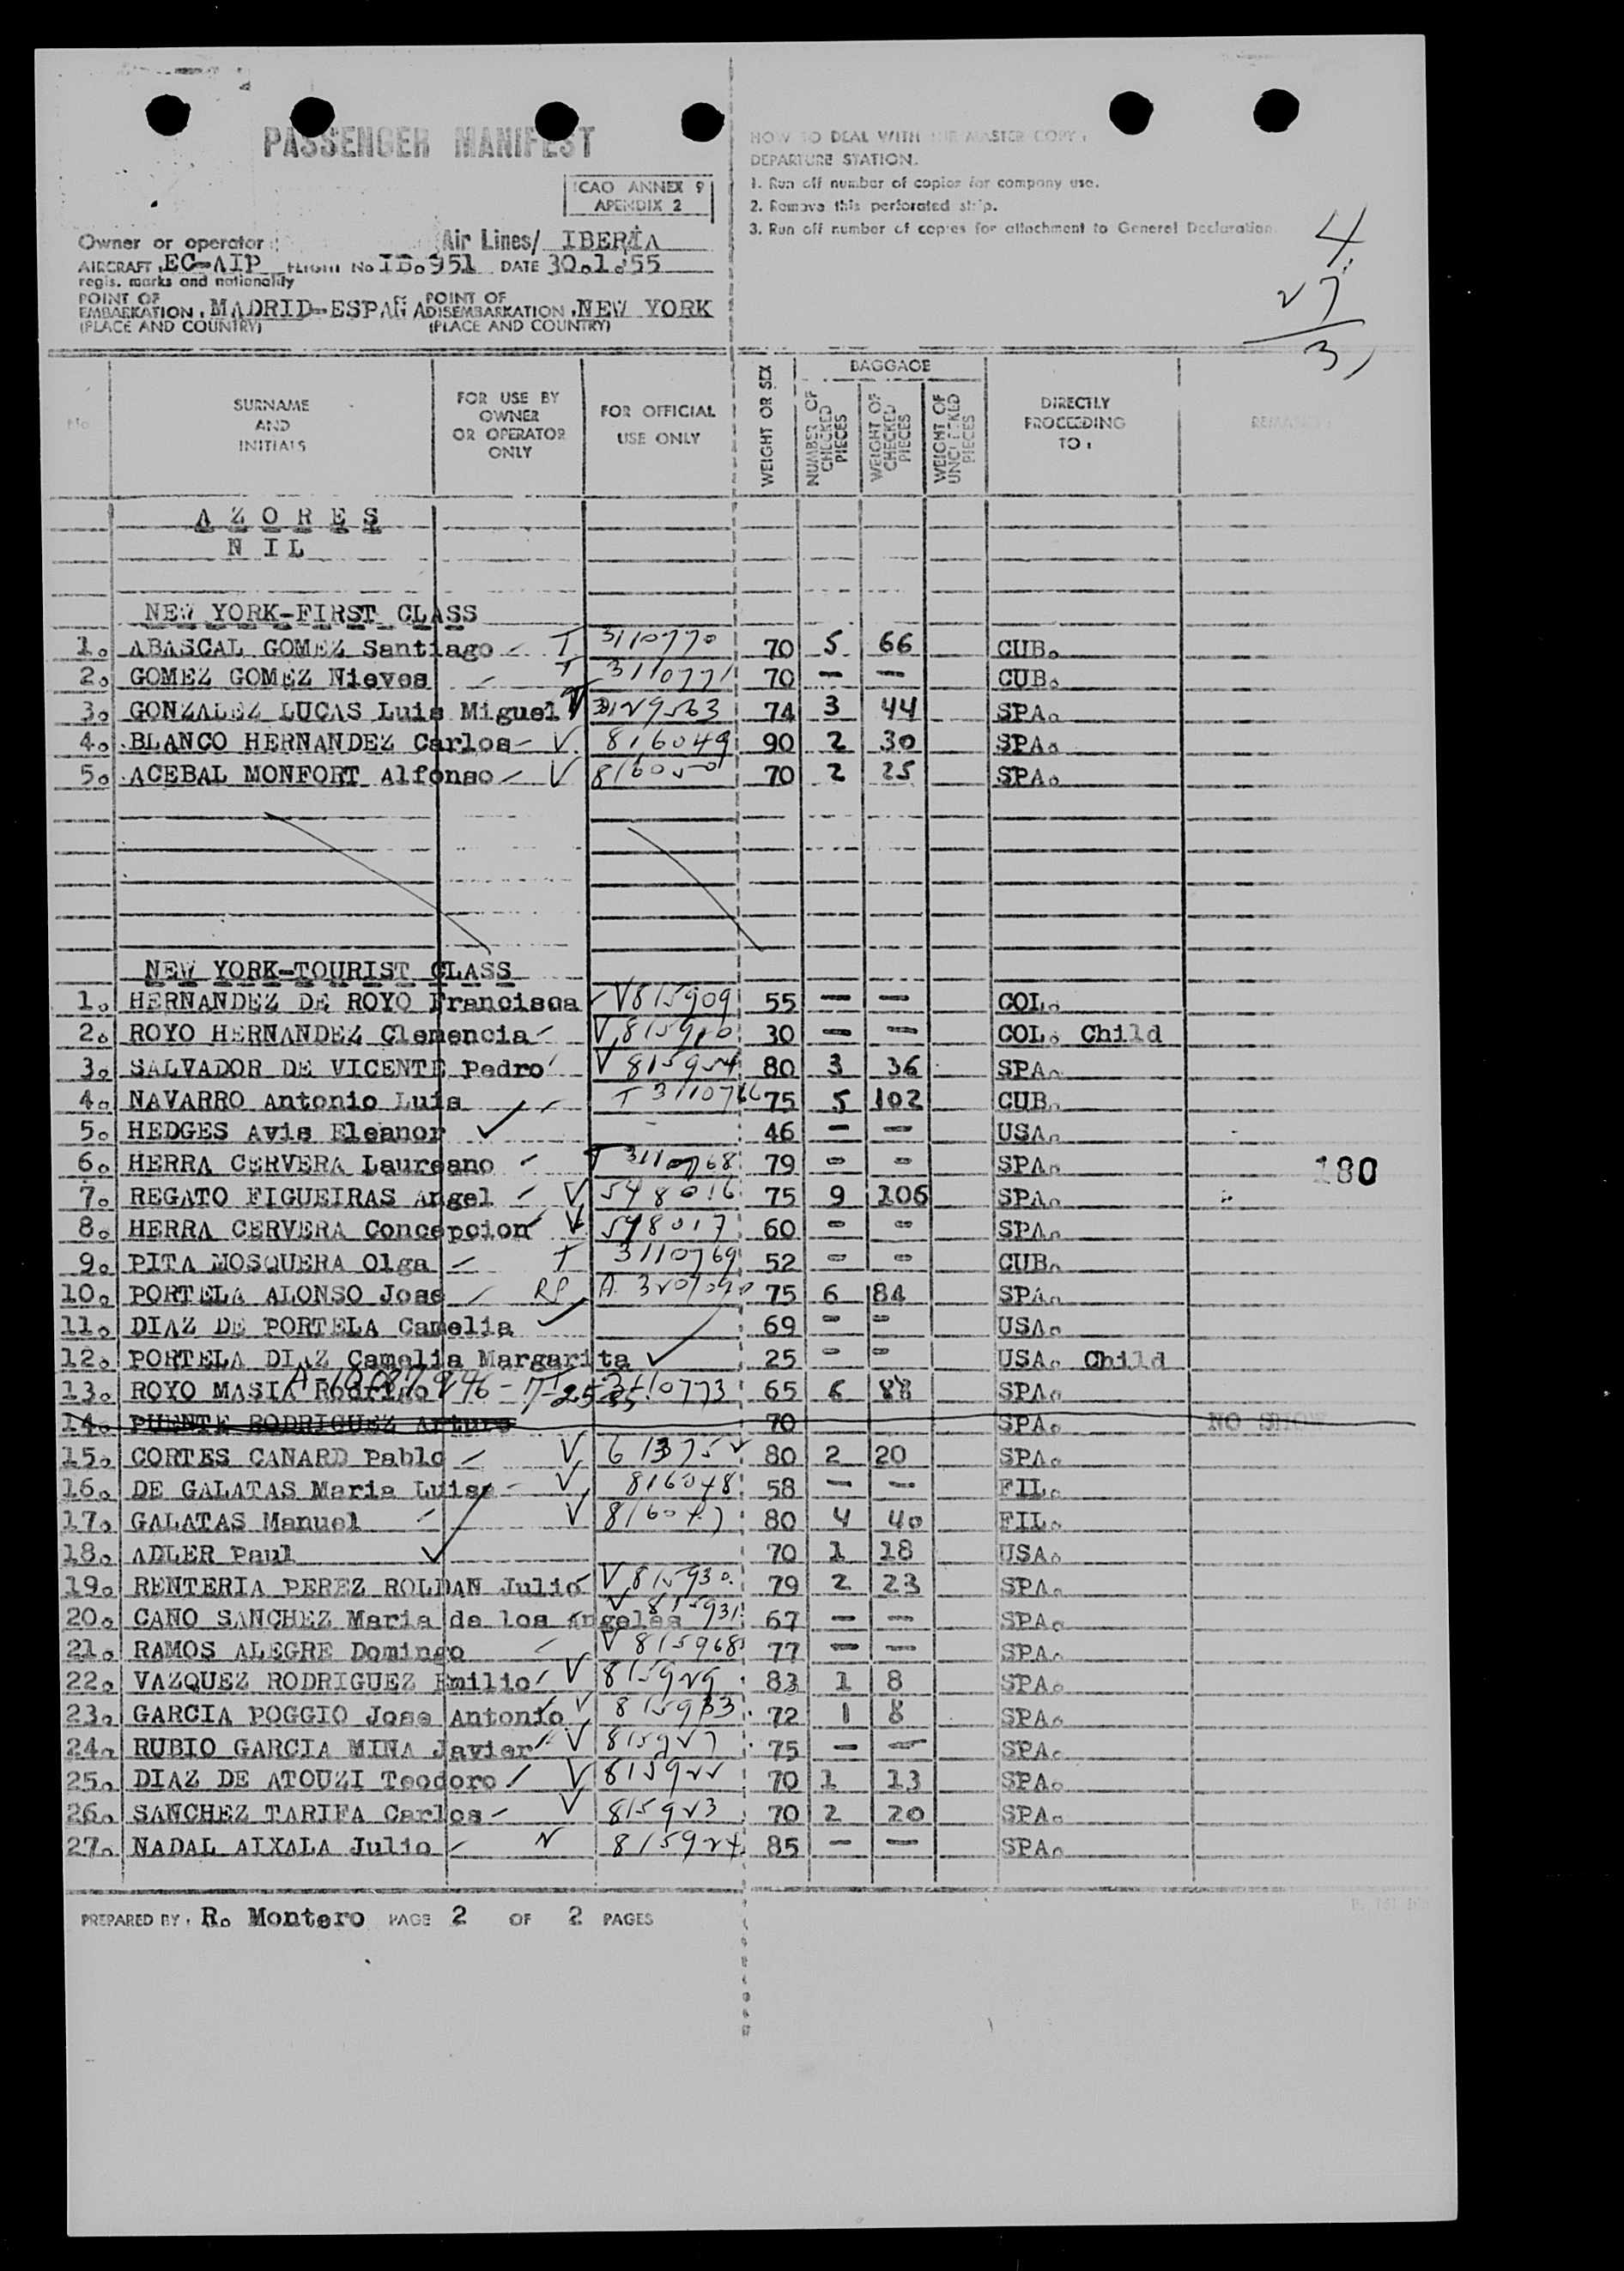 PASSENGER MANIFEST
ICAO ANNEX 9
APENDIX 2
HOW TO DEAL WITH THE MASTER COPY:
DEPARTURE STATION.
1. Run off number of copies for company use.
2. Remove this perforated strip.
3. Run off number of copies for attachment to General Declaration.
4
27
31
Owner or operator: Air Lines/ IBERIA
AIRCRAFT EC-AIP FLIGHT No IB.951 DATE 30.1.55
regis. marks and nationality
POINT OF EMBARKATION, MADRID-ESPAÑA POINT OF DISEMBARKATION, NEW YORK
(PLACE AND COUNTRY) (PLACE AND COUNTRY)
No SURNAME AND INITIALS FOR USE BY OWNER OR OPERATOR ONLY FOR OFFICIAL USE ONLY WEIGHT OR SEX BAGGAGE NUMBER OF CHECKED PIECES WEIGHT OF CHECKED PIECES WEIGHT OF UNCHECKED PIECES DIRECTLY PROCEEDING TO: REMARKS
A Z O R E S
N I L
NEW YORK-FIRST CLASS
1. ABASCAL GOMEZ Santiago T 3110770 70 5 66 CUB.
2. GOMEZ GOMEZ Nieves T 3110771 70 - - CUB.
3. GONZALEZ LUCAS Luis Miguel 74 3 44 SPA.
4. BLANCO HERNANDEZ Carlos V 816049 90 2 30 SPA.
5. ACEBAL MONFORT Alfonso V 816050 70 2 25 SPA.
NEW YORK-TOURIST CLASS
1. HERNANDEZ DE ROYO Francisca V 815909 55 - - COL.
2. ROYO HERNANDEZ Clemencia V 815910 30 - - COL. Child
3. SALVADOR DE VICENTE Pedro V 815954 80 3 36 SPA.
4. NAVARRO Antonio Luis T 3110766 75 5 102 CUB.
5. HEDGES Avis Eleanor 46 - - USA.
6. HERRA CERVERA Laureano T 3110768 79 - - SPA.
7. REGATO FIGUEIRAS Angel V 548016 75 9 106 SPA.
180
8. HERRA CERVERA Concepcion V 548017 60 - - SPA.
9. PITA MOSQUERA Olga T 3110769 52 - - CUB.
10. PORTELA ALONSO Jose RP A 3207090 75 6 84 SPA.
11. DIAZ DE PORTELA Camelia 69 - - USA.
12. PORTELA DIAZ Camelia Margarita 25 - - USA. Child
13. ROYO MASIA Rodrigo 3110773 65 6 88 SPA.
14. PUENTE RODRIGUEZ Arturo 70 SPA. NO SHOW
15. CORTES CANARD Pablo V 613752 80 2 20 SPA.
16. DE GALATAS Maria Luisa V 816048 58 - - FIL.
17. GALATAS Manuel V 816047 80 4 40 FIL.
18. ADLER Paul 70 1 18 USA.
19. RENTERIA PEREZ ROLDAN Julio V 815930 79 2 23 SPA.
20. CANO SANCHEZ Maria de los Angeles V 815931 67 - - SPA.
21. RAMOS ALEGRE Domingo V 815968 77 - - SPA.
22. VAZQUEZ RODRIGUEZ Emilio V 815929 83 1 8 SPA.
23. GARCIA POGGIO Jose Antonio V 815933 72 1 8 SPA.
24. RUBIO GARCIA MINA Javier V 815927 75 - - SPA.
25. DIAZ DE ATOUZI Teodoro V 815922 70 1 13 SPA.
26. SANCHEZ TARIFA Carlos V 815923 70 2 20 SPA.
27. NADAL AIXALA Julio V 815924 85 - - SPA.
PREPARED BY: R. Montero PAGE 2 OF 2 PAGES